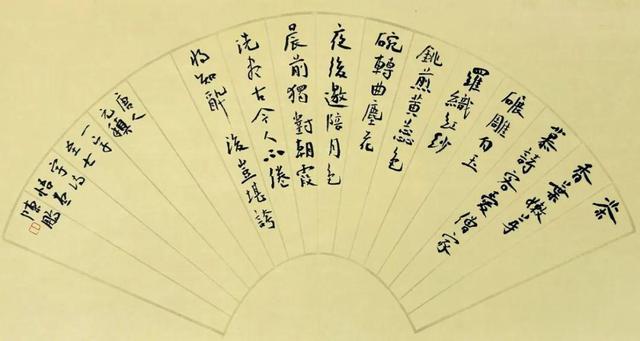 茶
香葉嫩芽
慕詩客愛僧家
碾雕白玉
羅織紅紗
銚煎黃蕊色
碗轉曲塵花
夜後邀陪月色
晨前獨對朝霞
洗盡古今人不倦
將知醉後豈堪誇
唐人
元稹
一字
至七
字詩